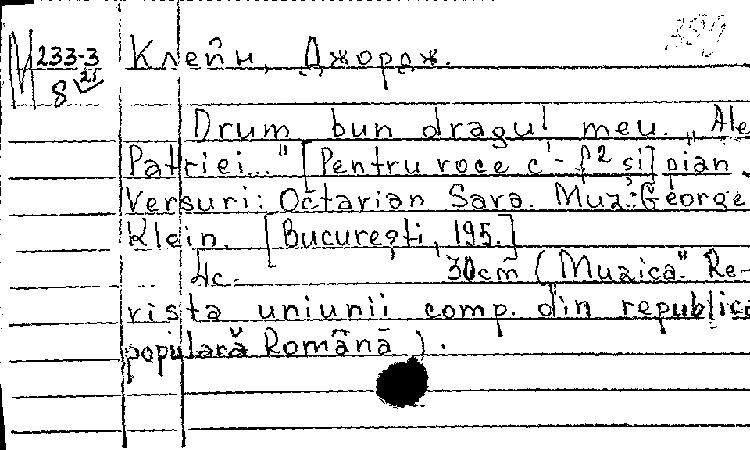 M 233-3
8 21
399
Клейн, Джордж.
Drum bun dragul meu. „Ale
Patriei..." [Pentru voce c¹ - f² și] pian.
Versuri: Octavian Sava. Muz.: George
Klein. [București, 195.]
4c. 30cm („Muzica". Re-
vista uniunii comp. din republica
populară Română).